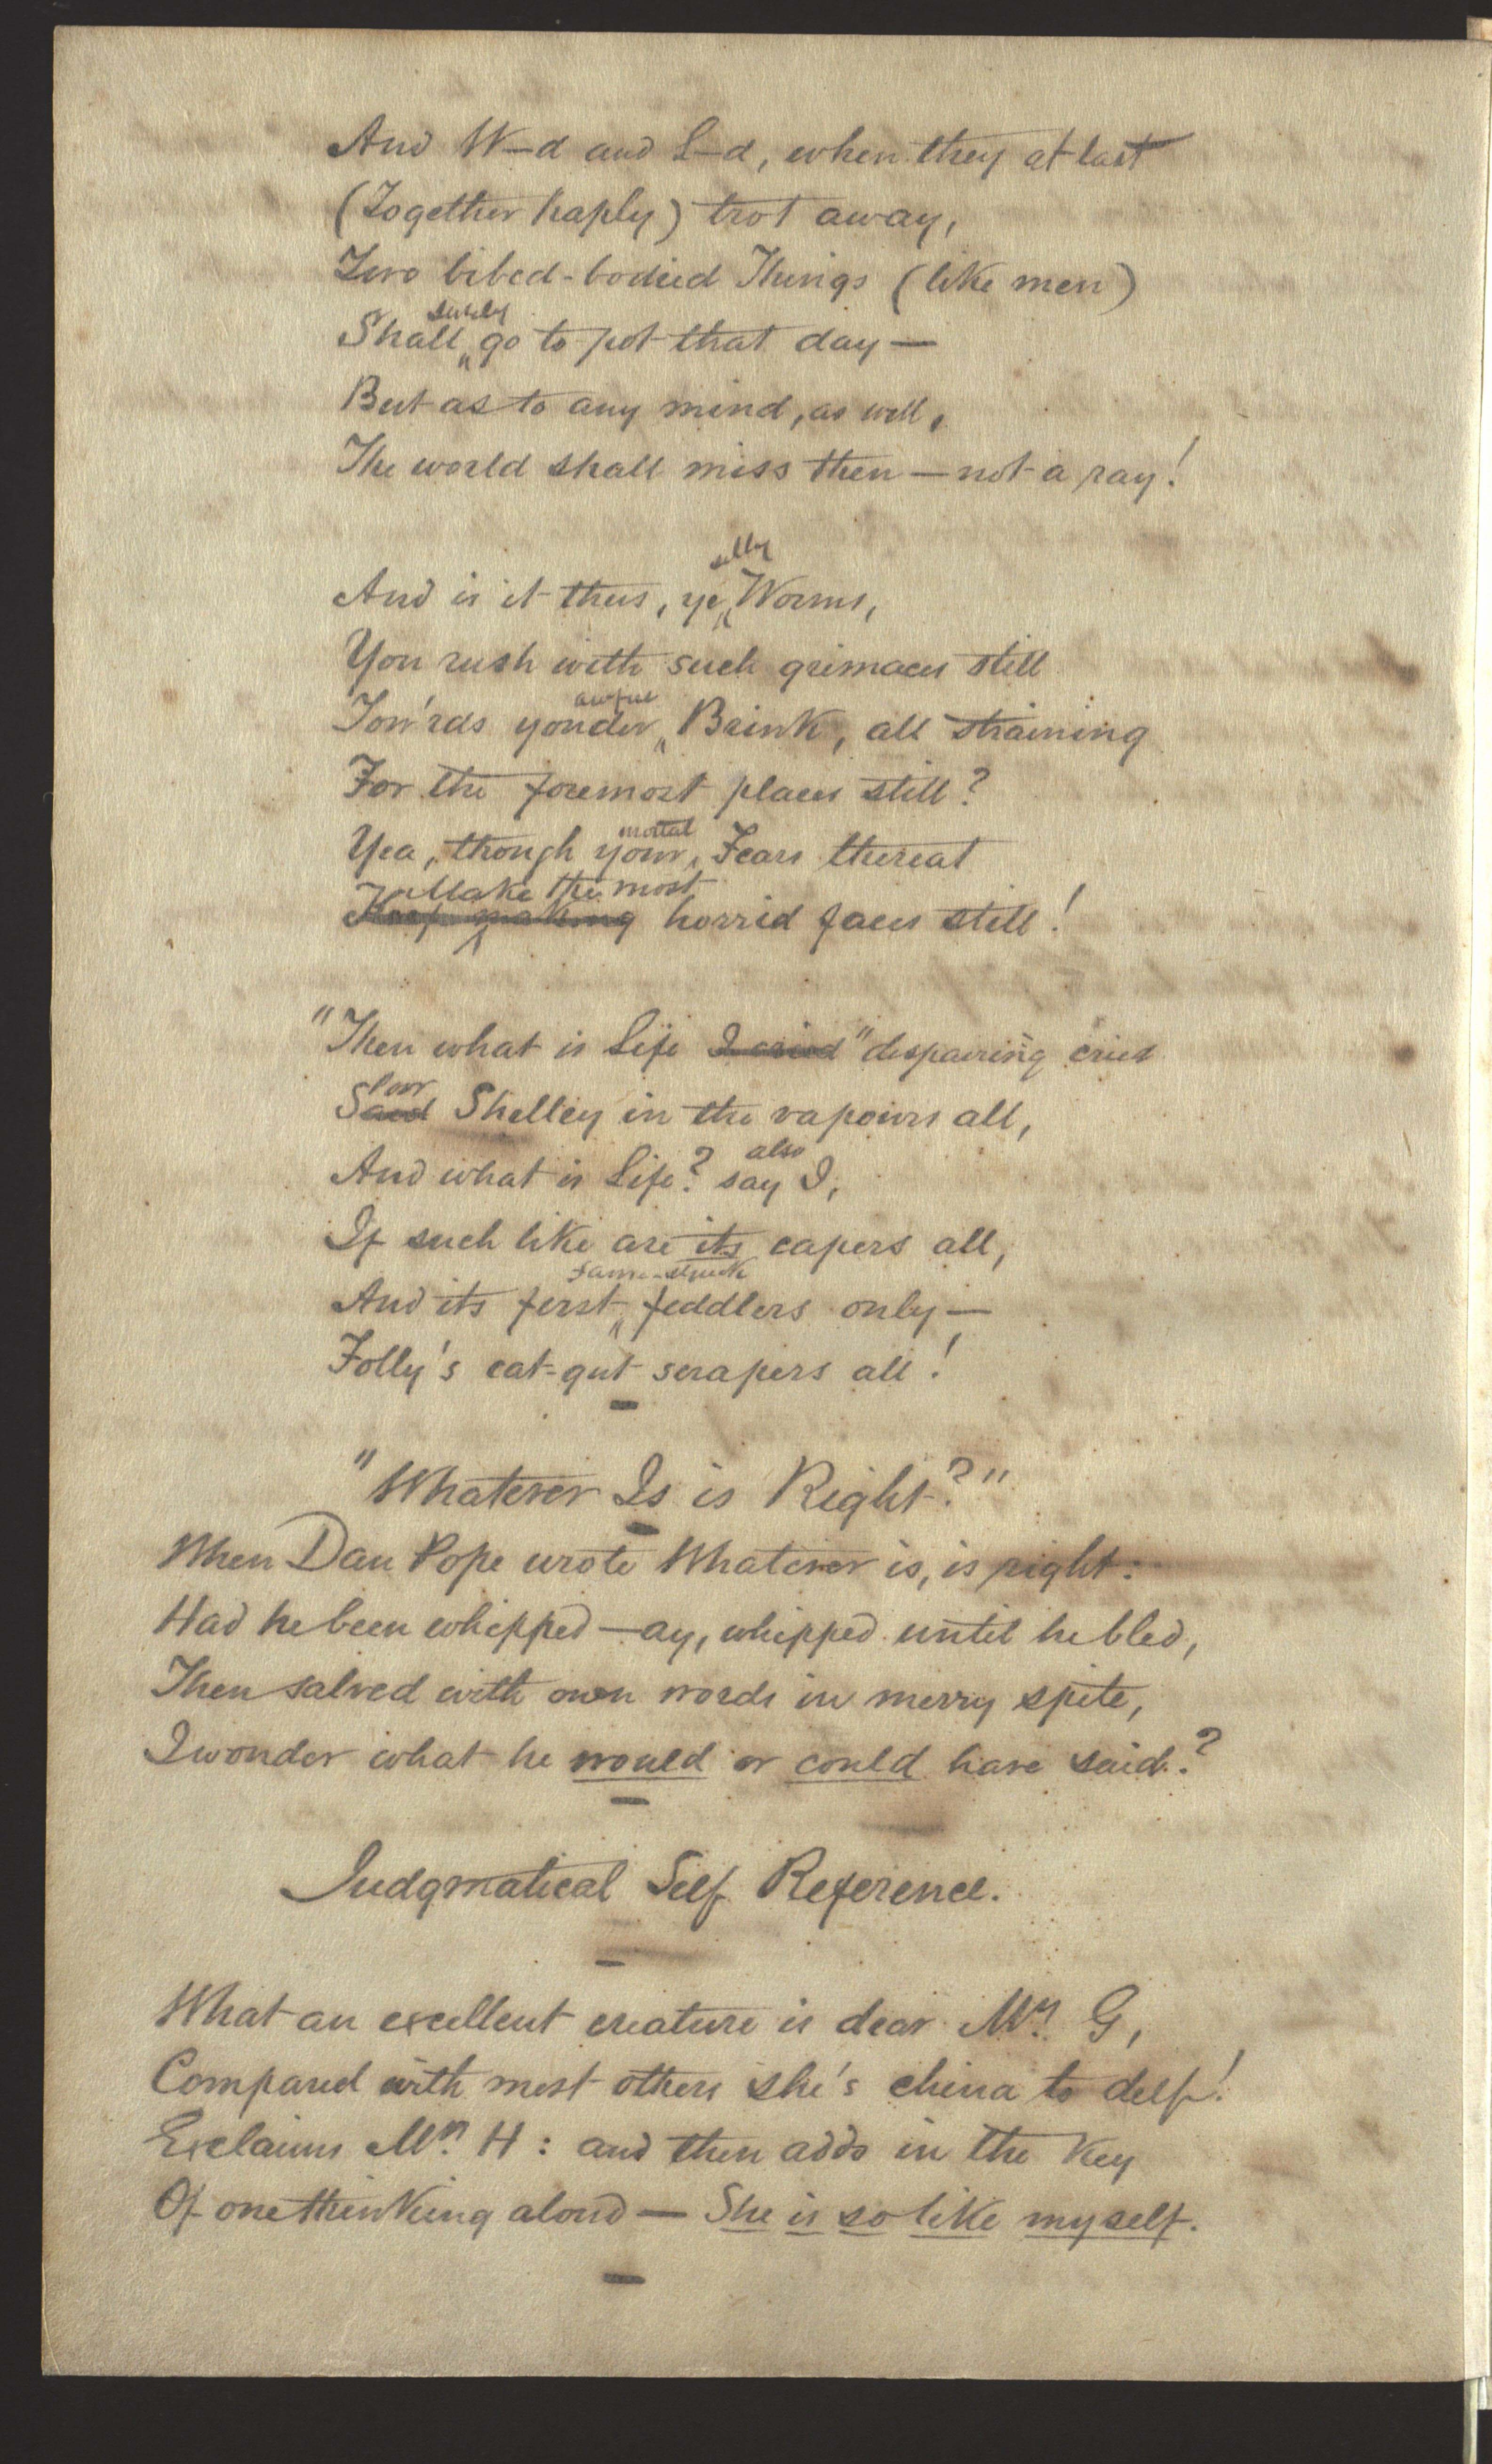 And W—d and L—d, when they at last
(Together haply) trot away,
Two bibed-bodied Things (like men)
Shall surely go to pot that day —
But as to any mind, as well,
The world shall miss then — not a ray!
And is it thus, ye silly Worms,
You rush with such grimaces still
Tow'rds yonder awful Brink, all straining
For the foremost places still?
Yea, though your mortal Fears thereat
Make the most
Keep making horrid faces still!
"Then what is Life I cried" despairing cries
Poor
Said Shelley in the vapours all,
And what is Life? say also I,
If such like are its capers all,
And its first fame-struck fiddlers only —
Folly's cat-gut scrapers all!
"Whatever Is is Right?"
When Dan Pope wrote Whatever is, is right:
Had he been whipped — ay, whipped until he bled,
Then salved with own words in merry spite,
I wonder what he would or could have said?
Judgmatical Self Reference.
What an excellent creature is dear Mrs. G,
Compared with most others she's china to delf!
Exclaims Mrs. H: and then adds in the key
Of one thinking aloud — She is so like myself.